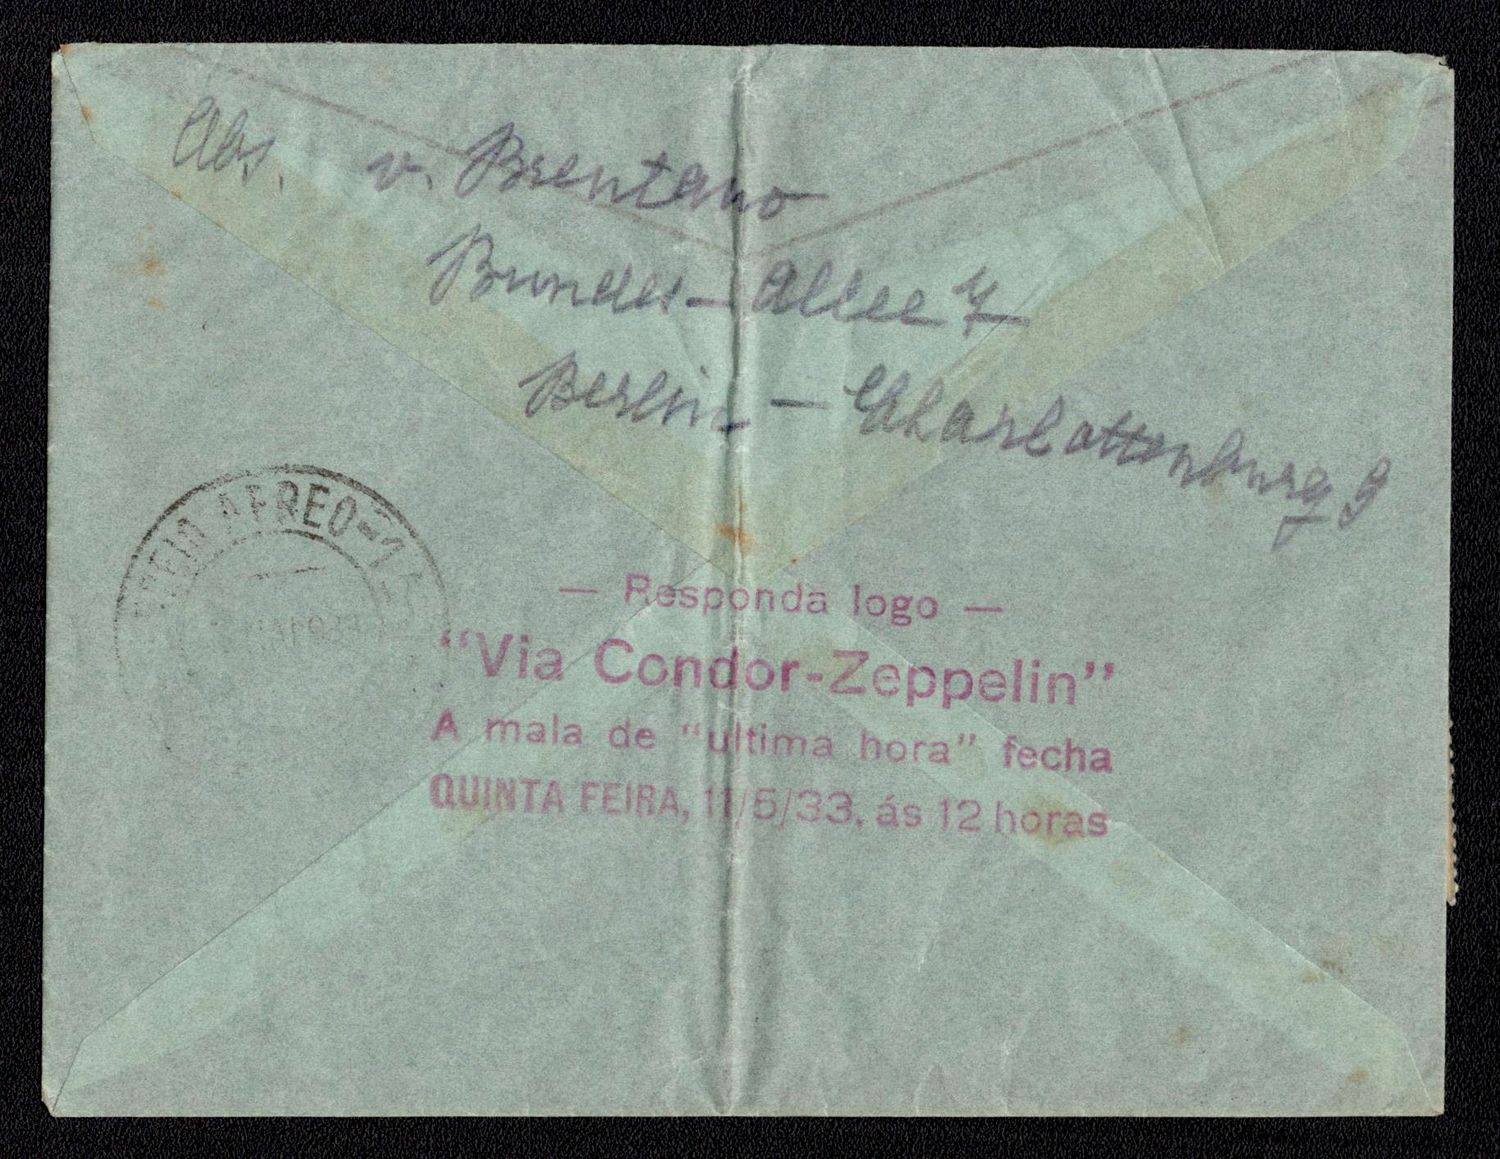 Abs. v. Brentano
Bundes-Allee 7
Berlin - Charlottenburg 9
AEREO-
— Responda logo —
“Via Condor-Zeppelin”
A mala de “ultima hora” fecha
QUINTA FEIRA, 11/5/33, ás 12 horas